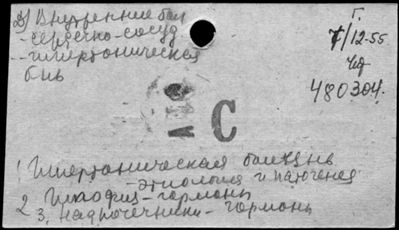 2) Внутренние бол
- сердечно-сосуд
- гипертоническая
бнь
Г.
7/12-55
480304.
C
1. Гипертоническая болезнь
- этиология и патогенез
2. Гипофиз - гормоны
3. Надпочечники - гормоны